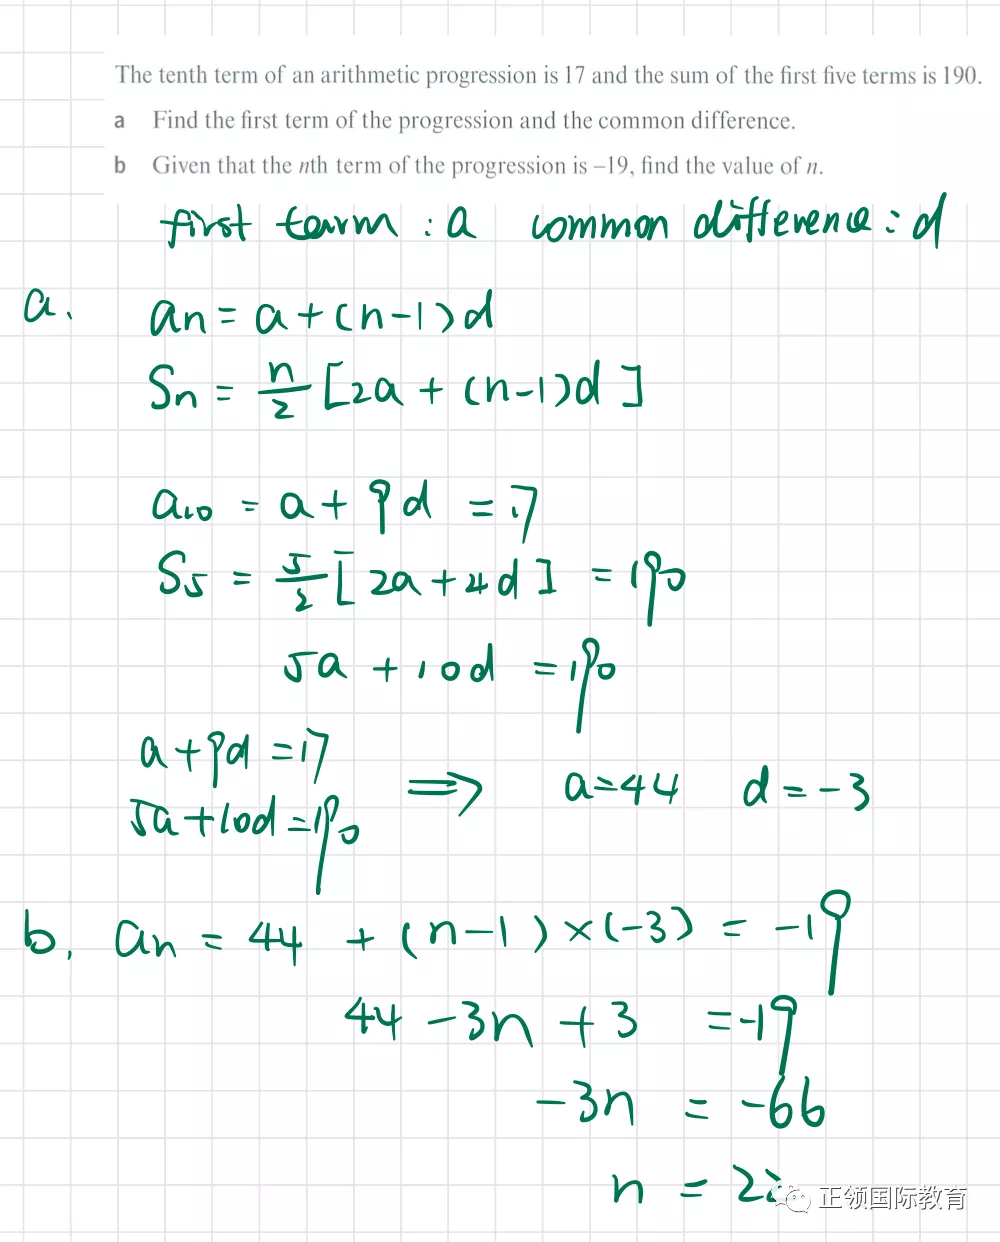 The tenth term of an arithmetic progression is 17 and the sum of the first five terms is 190.
a Find the first term of the progression and the common difference.
b Given that the nth term of the progression is –19, find the value of n.
first term : a common difference : d
a. an = a + (n-1)d
Sn = n/2 [2a + (n-1)d]
a10 = a + 9d = 17
S5 = 5/2 [2a + 4d] = 190
5a + 10d = 190
a + 9d = 17
5a + 10d = 190 ⟹ a = 44 d = -3
b. an = 44 + (n-1) × (-3) = -19
44 - 3n + 3 = -19
-3n = -66
n = 22
正领国际教育